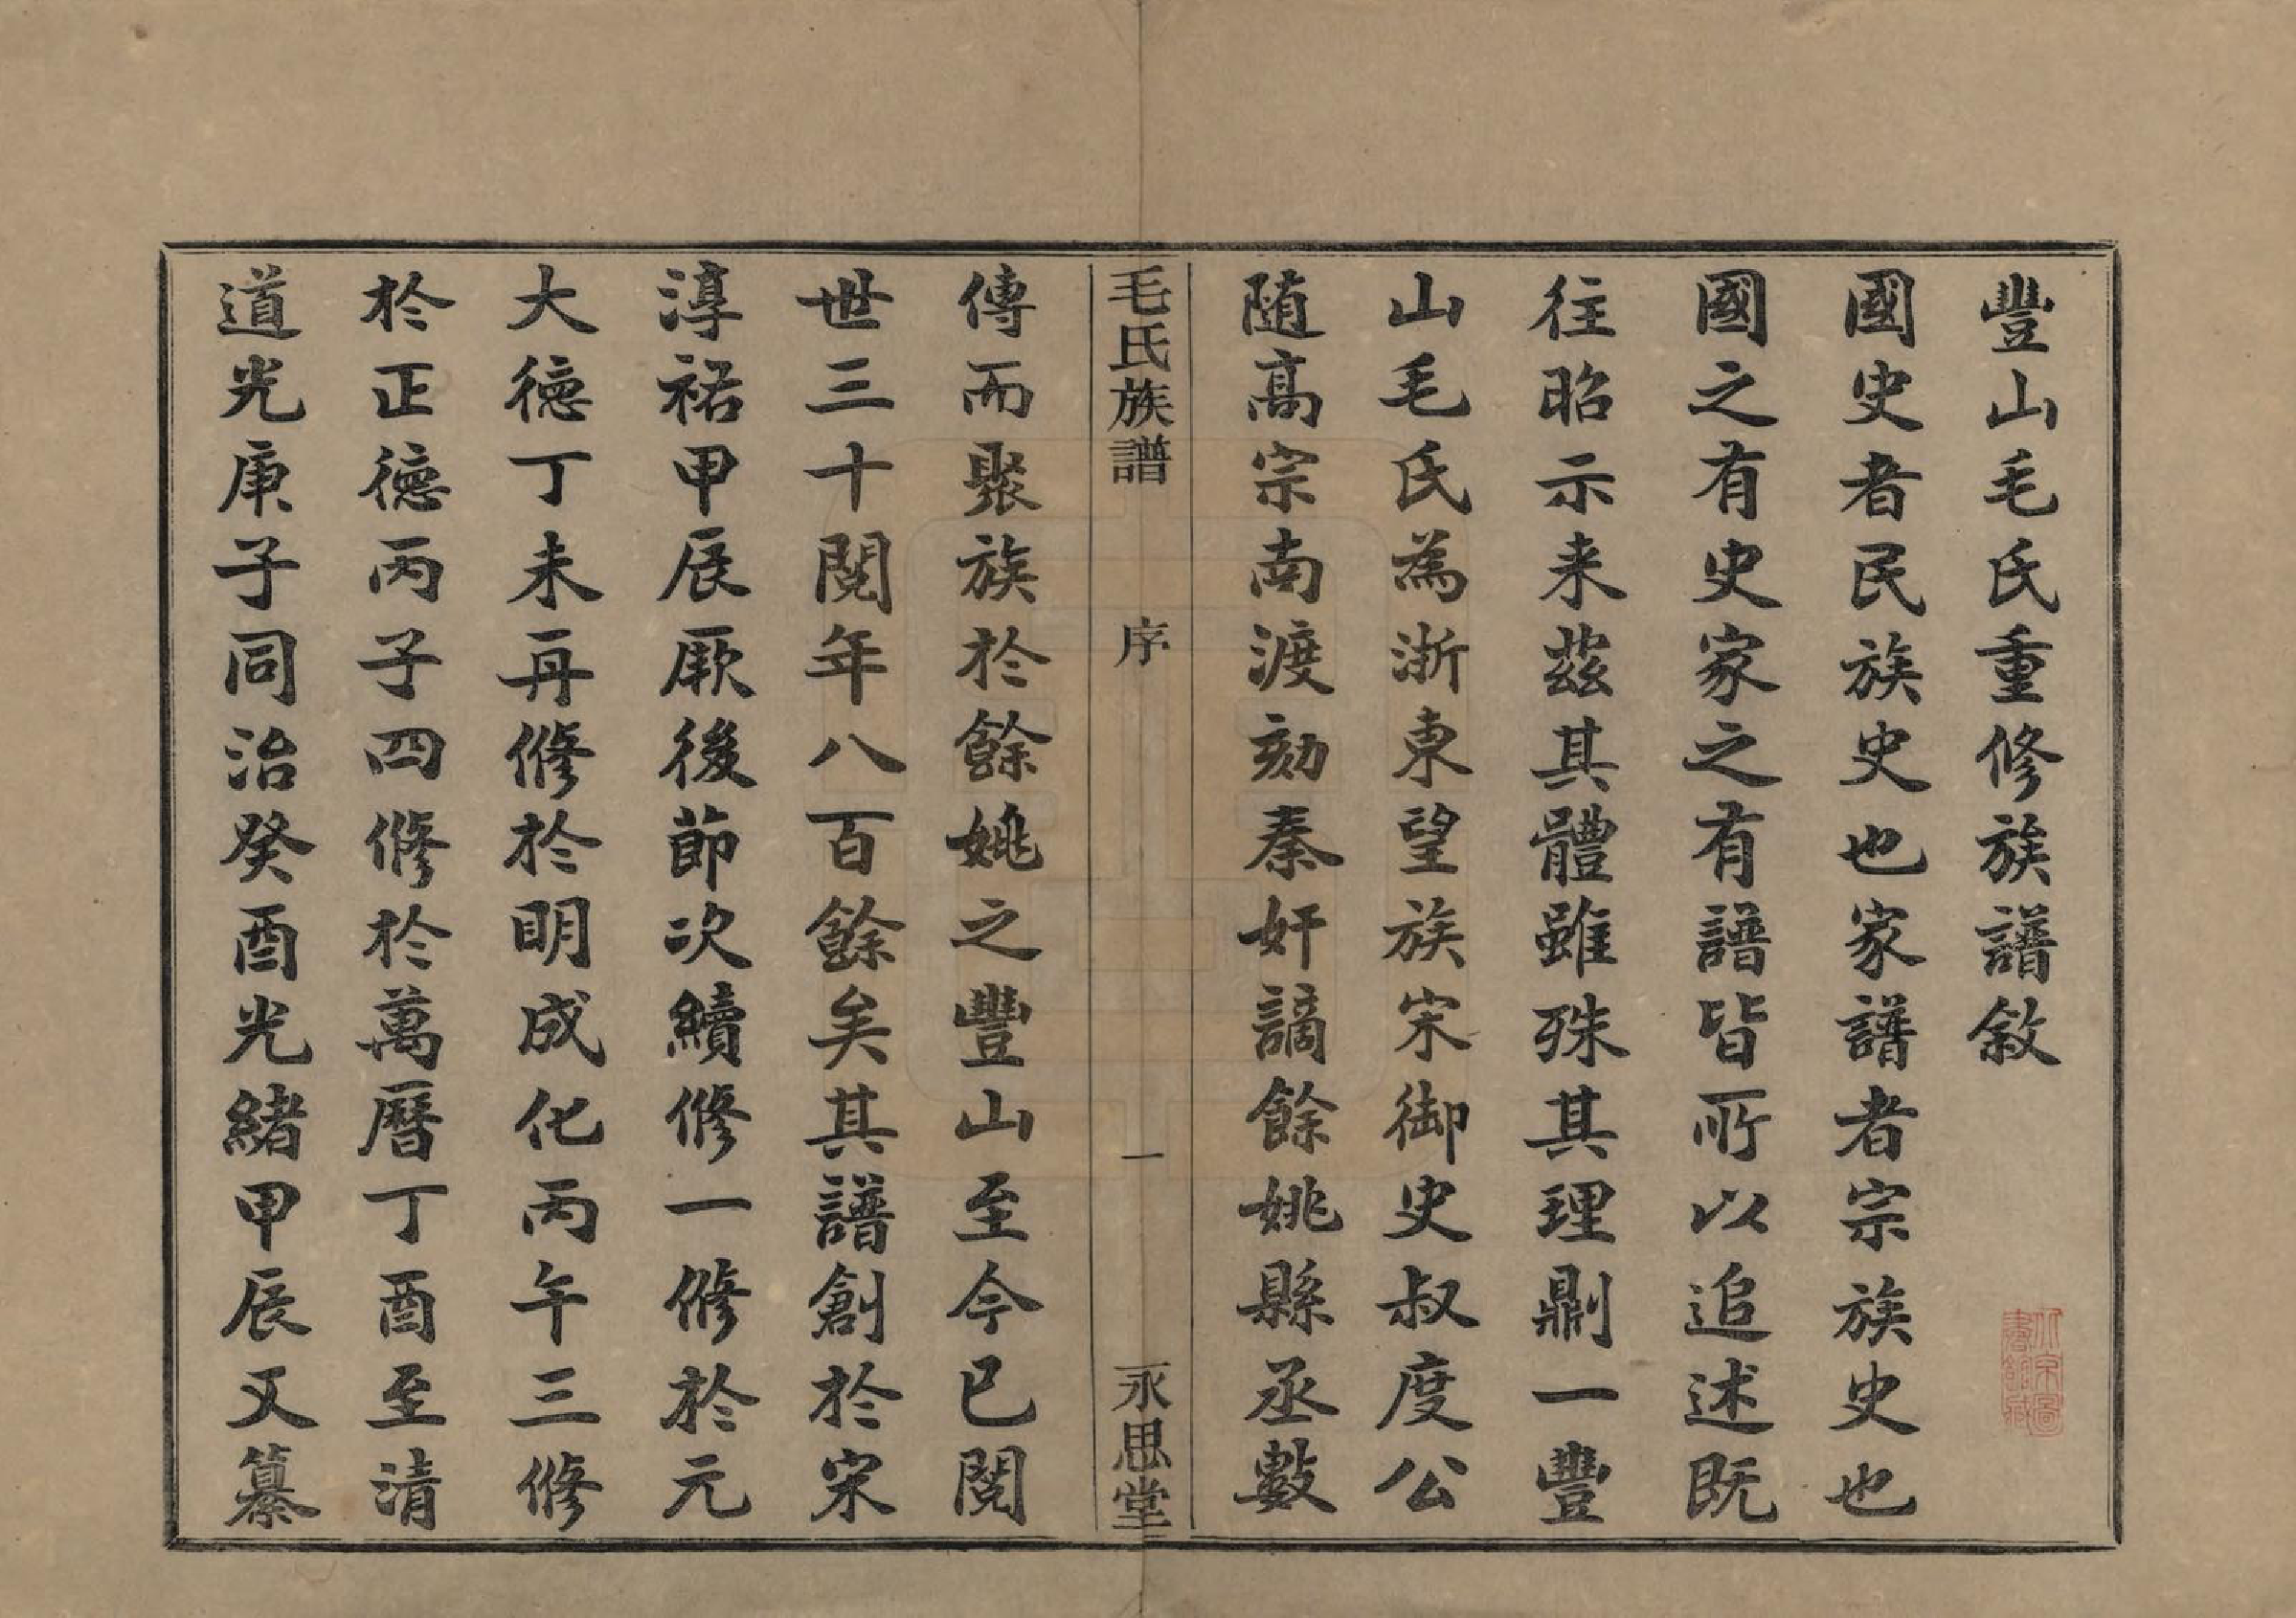 豐山毛氏重修族譜敘
國史者民族史也家譜者宗族史也
國之有史家之有譜皆所以追述既
往昭示来茲其體雖殊其理則一豐
山毛氏為浙東望族宋御史叔度公
随高宗南渡劾秦奸謫餘姚縣丞數
毛氏族譜 序 一 永思堂
傳而聚族於餘姚之豐山至今已閱
世三十閱年八百餘矣其譜創於宋
淳祐甲辰厥後節次續修一修於元
大德丁未再修於明成化丙午三修
於正德丙子四修於萬曆丁酉至清
道光庚子同治癸酉光緒甲辰又纂